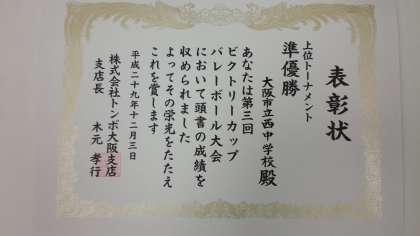 表彰状
上位トーナメント
準優勝
大阪市立西中学校殿
あなたは第三回
ビクトリーカップ
バレーボール大会
において頭書の成績を
収められました
よってその栄光をたたえ
これを賞します
平成二十九年十二月三日
株式会社トンボ大阪支店
支店長 木元孝行